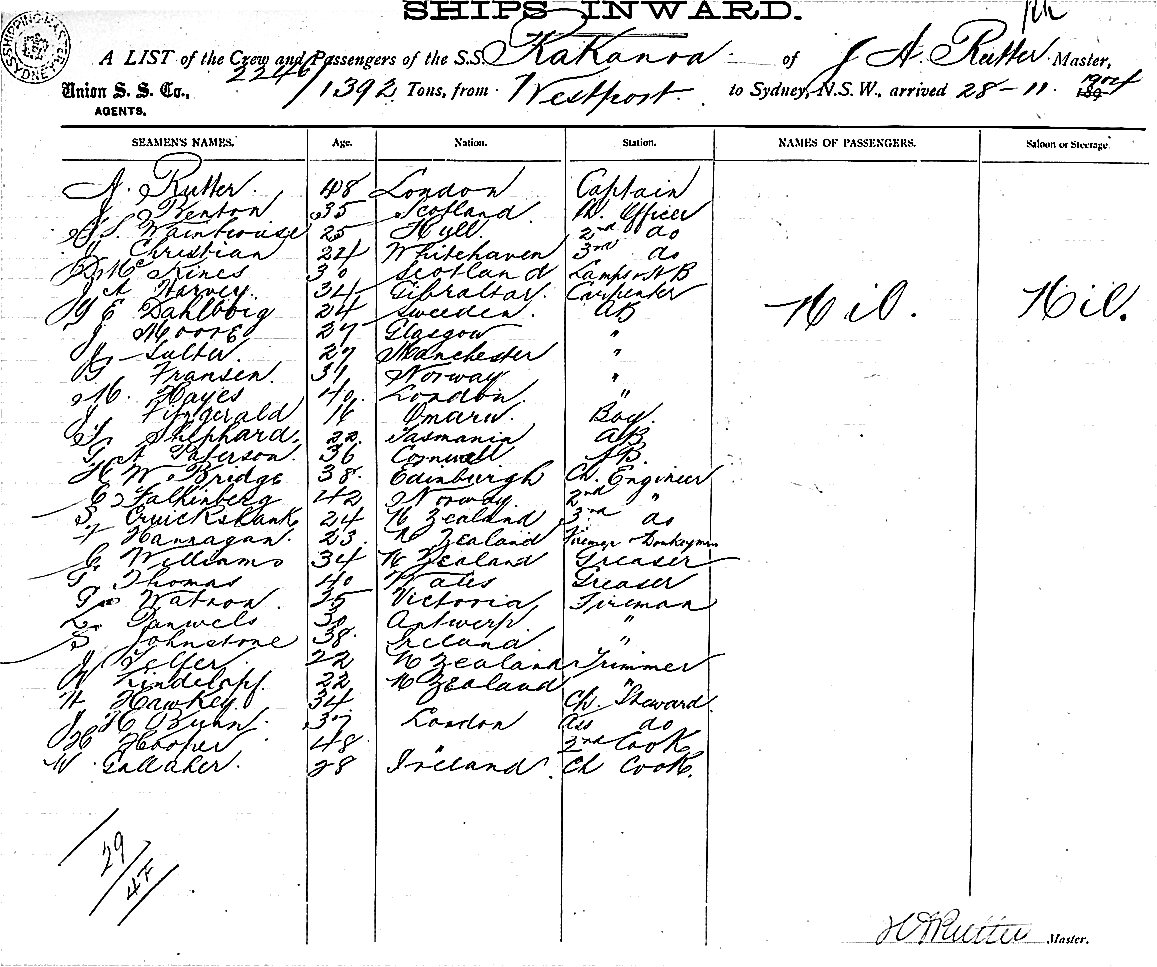 SHIPS INWARD.
SHIPPING MASTER SYDNEY
A LIST of the Crew and Passengers of the S.S. Kakanoa of J A. Rutter Master,
2246/1392 Tons, from Westport. to Sydney, N.S.W., arrived 28-11. 1904
Union S. S. Co.,
AGENTS.
SEAMEN'S NAMES. Age. Nation. Station. NAMES OF PASSENGERS. Saloon or Steerage.
A. Rutter. 48 London Captain
J Renton 35 Scotland Officer
S. Wainhouse 25 Hull 2nd do
Christian 24 Whitehaven 3rd do
D. Mc Kines 30 Scotland Lamps & AB
J A Harvey. 34 Gibraltar. Carpenter
E Dahlboig 24 Sweden. AB
Nil. Nil.
J Moore 27 Glasgow "
Sulter. 29 Manchester "
G Fransen. 31 Norway "
M. Hayes 40. London. "
J Fitzgerald 16 Omaru Boy
Shephard. 22. Tasmania AB
G A Paterson. 36 Cornwall AB
H W Bridge 38. Edinburgh Ch. Engineer
E Falkinberg 42 Norway 2nd "
S Cruickshank 24 N Zealand 3rd do
F Hanragan. 23. N Zealand Fireman & Donkeyman
G Williams 34 N Zealand Greaser
G Thomas 40 Wales Greaser
Watson. 35 Victoria Fireman
L. Panwels 30 Antwerp "
S Johnstone 38. Ireland. "
J Telfer 22 N Zealand Trimmer
W Kindelopf. 22 N Zealand "
H Hawkey. 34 Ch. Steward
J H Bunn. 37 London Ass do
H Hooper 48. " 2nd Cook
W Gallaher 28 Ireland. Ch Cook.
29/4F
H A Rutter Master.